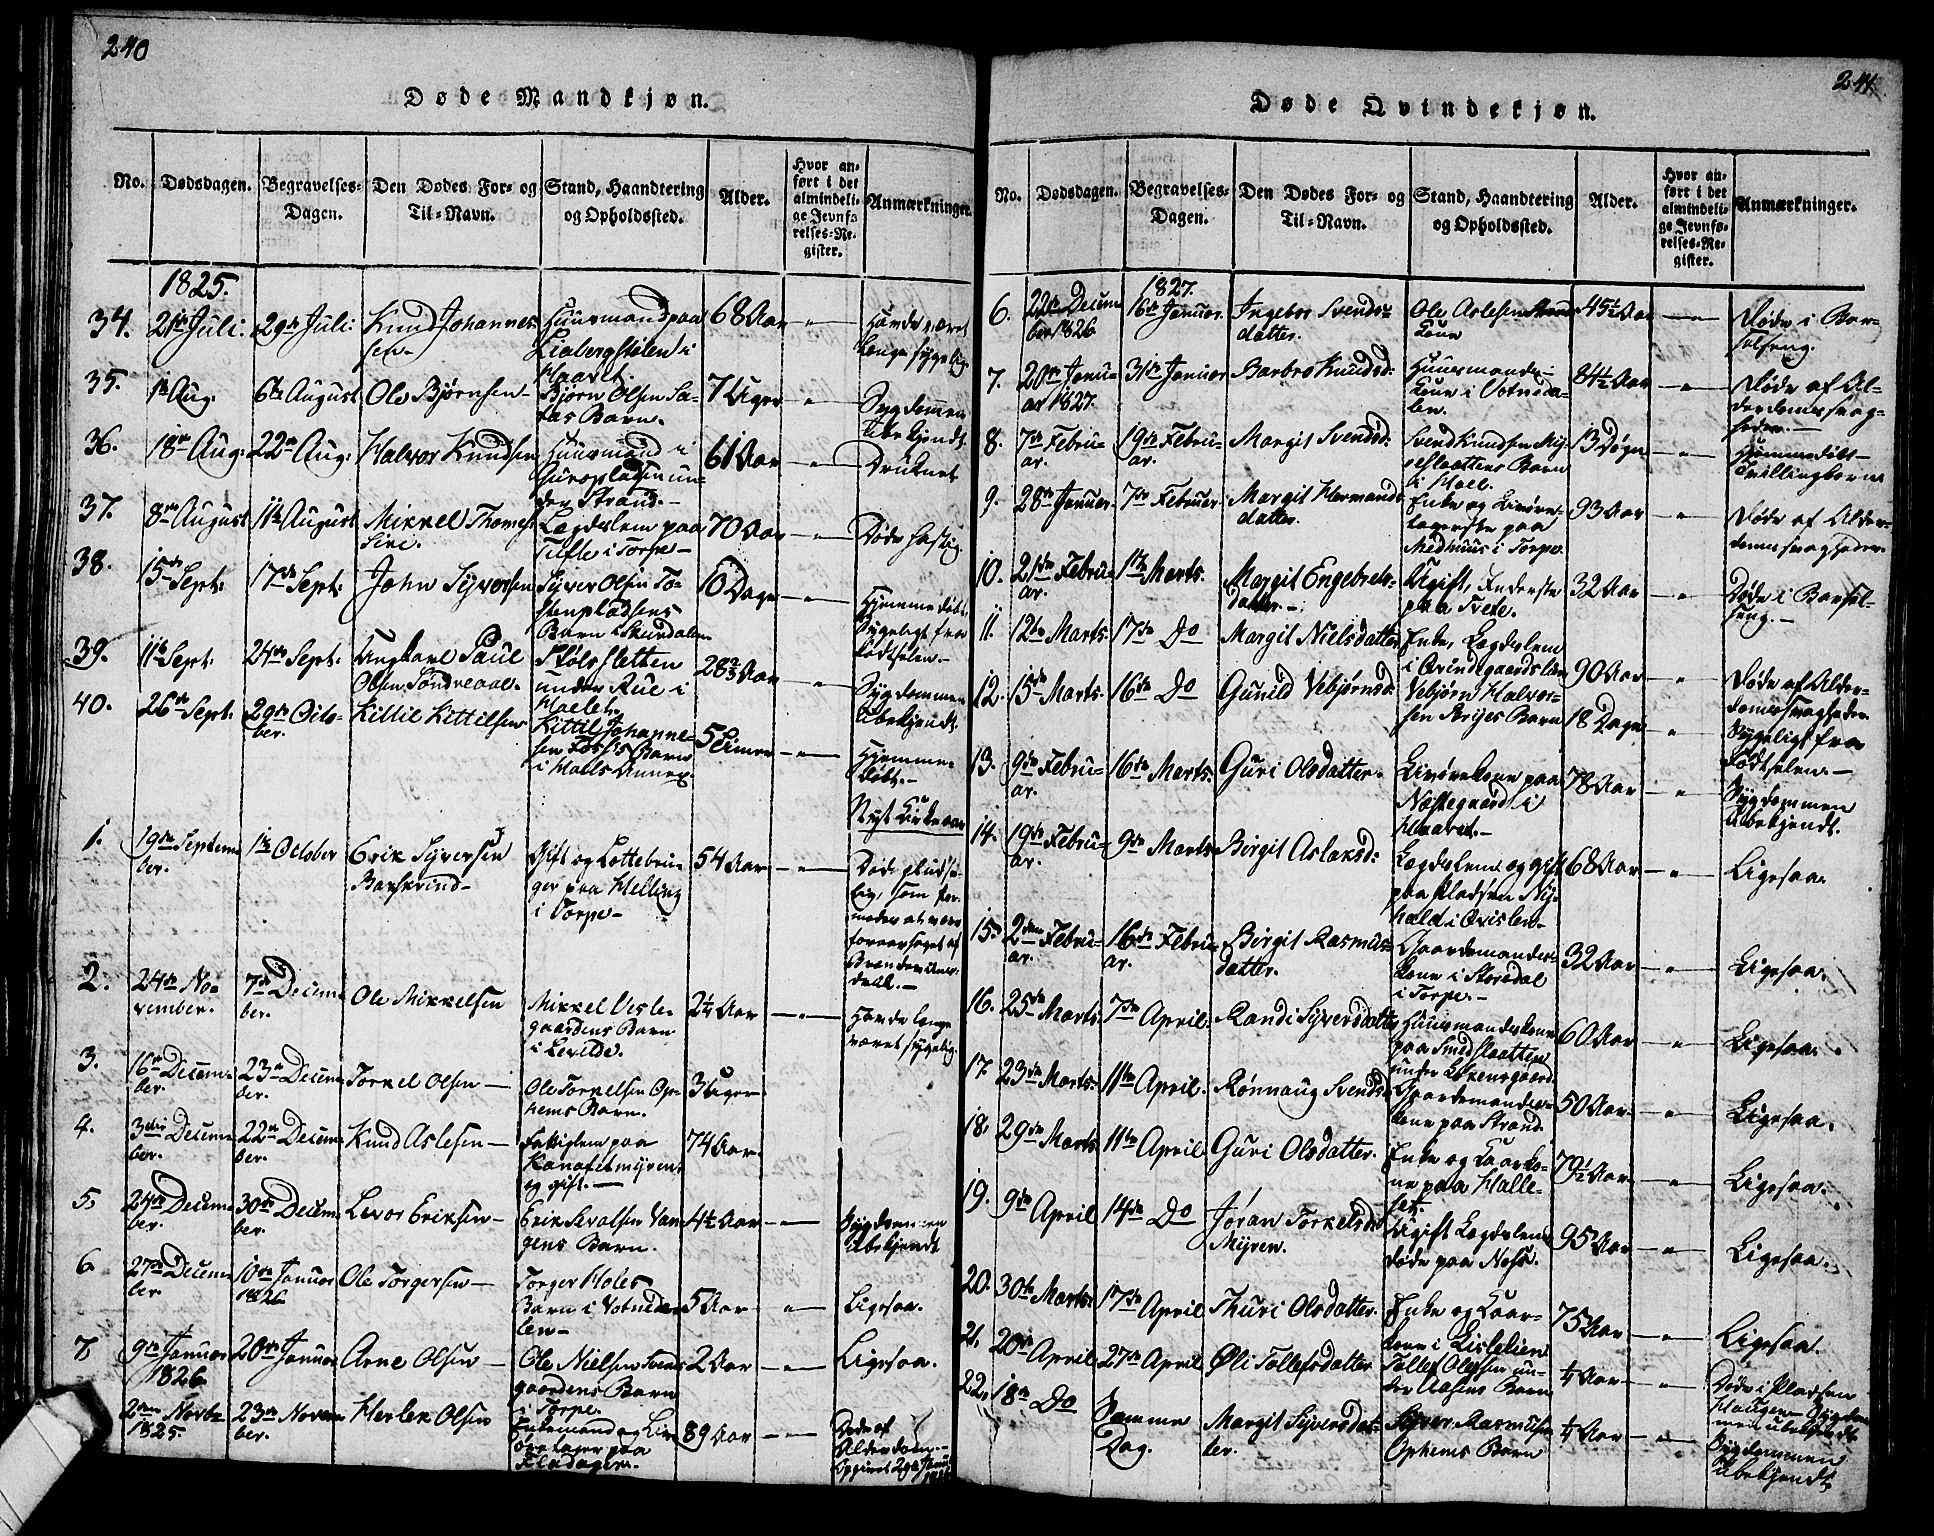 240
Døde Mandkjøn.
No. Dødsdagen. Begravelses-Dagen. Den Dødes For- og Til-Navn. Stand, Haandtering og Opholdssted. Alder. Hvor anført i det almindelige Jevnførelses-Register. Anmærkninger.
1825.
34. 21de Juli. 29de Juli. Knud Johannessen Huusmand paa Liabergstølen i Haavet. 68 Aar " Havde været lenge sygelig
35. 1te Aug. 6te August Ole Bjørnsen Bjørn Olsen Barn. 7 Uger " Sygdommen Ubekjendt.
36. 18de Aug. 22de Aug. Halvor Knudsen Huusmand i under Strand. 61 Aar " Druknet
37. 8de August 11te August Mikkel Thomes. Lægdslem paa Tufte i Torpe 70 Aar " Døde hastig.
38. 15de Sept. 17de Sept. John Syversen Syver Olsen Barn i Skurdalen 10 Dage " Hjemmedøbt. Sygeligt fra Fødselen.
39. 11te Sept. 24de Sept. Ungkarl Paul Olsen Sondreaal. Stølsletten under Rue i Holet. 28 2/3 Aar " Sygdommen Ubekjendt.
40. 26de Sept. 2den October Kittil Kittilsen Kittil Johannesen Foss's Barn i Halls Annex. 5 Timer " Hjemmedøbt.
Nyt Kirkeaar
1. 19de September. 1te October Erik Syversen Barskrind Gift og paa Helling i Torpe 54 Aar " Døde pludselig, som formodes at være foraarsaget af Brændeviinsdrik.
2. 24de November. 7de December. Ole Mikkelsen Mikkel Vestegaardens Barn i Leveldo. 2¼ Aar " Havde lenge været sygelig.
3. 16de December. 23de December. Torkel Olsen Ole Torkelsen Ophems Barn. 3 Uger
4. 3die December. 22de December. Knud Aslesen Fattiglem paa og gift. 74 Aar.
5. 24de December. 30de December. Levor Eriksen Erik Sevalsen Vangens Barn. 4½ Aar " Sygdommen Ubekjendt
6. 27de December. 10de Januar 1826. Ole Torgersen Torger Holes Barn i Votnedalen 5 Aar " Ligesaa.
7. 9de Januar 1826 20de Januar Arne Olsen Ole Nielsen gaardens Barn i Torpe. 2 Aar " Ligesaa.
2den Novbr. 1825. 23de November. Herlek Olsen Enkemand og Livøretager paa 89 Aar " Døde af Alderdom. Opgivet 29de Januar 1826
241
Døde Qvindekjøn.
No. Dødsdagen. Begravelses-Dagen. Den Dødes For- og Til-Navn. Stand, Haandtering og Opholdssted. Alder. Hvor anført i det almindelige Jevnførelses-Register. Anmærkninger.
1827.
6. 22de December 1826 16de Januar. Ingebor Svendsdatter. Ole Aslesen Kone 45½ Aar " Døde i Barselseng.
7. 20de Januar 1827. 31te Januar Barbro Knudsd. Huusmands-Kone i Votndalen. 84½ Aar " Døde af Alderdomssvagheder.
8. 7de Februar. 19de Februar. Margit Svendsd. Svend Knudsen slaattens Barn i Hoel. 13 Døgn " Hjemmedøbt Tvillingbarn
9. 28de Januar. 7de Februar. Margit Hermandsdatter. Enke og Livøretagerske paa Medhuus i Torpe. 93 Aar " Døde af Alderdomssvagheder.
10. 21de Februar. 17de Marts. Margit Engebretsdatter. Ugift, Inderste paa Tvete. 32 Aar " Døde i Barselseng.
11. 12te Marts. 17de Do Margit Nielsdatter Enke, Lægdslem i Qvindegaardslien 90 Aar " Døde af Alderdomssvagheder
12. 15de Marts. 16de Do Gunild Vebjørnsd. Vebjørn Halvorsen Bryes Barn 18 Dage " Sygeligt fra Fødselen.
13. 9de Februar. 16de Marts. Guri Olsdatter. Livørekone paa Næstegaard i Haavet. 78 Aar " Sygdommen Ubekjendt.
14. 19de Februar. 9de Marts Birgit Aslaksd. Lægdslem og gift paa Pladsen i Qvislen. 68 Aar " Ligesaa.
15. 2den Februar. 16de Februar. Birgit Rasmusdatter. Gaardmandskone i Storedal i Torpe. 32 Aar " Ligesaa.
16. 25de Marts. 7de April. Randi Syversdatter Huusmandskone paa Smedslaatten under Løkensgaard. 60 Aar " Ligesaa.
17. 23de Marts. 11te April. Rønnaug Svendsd. Gaardmandskone paa Strand. 50 Aar " Ligesaa.
18. 29de Marts 11te April Guri Olsdatter. Enke og Kaarkone paa Halleset. 79½ Aar " Ligesaa.
19. 9de April 14de Do Jøran Torkelsd. Myren. Ugift Lægdslem døde paa Ness. 95 Aar " Ligesaa.
20. 30te Marts. 17de April Thuri Olsdatter. Enke og Kaarkone i Lislelien 75 Aar " Ligesaa.
21. 20de April 27de April Øli Tollefsdatter Tollef Olsen under Aasens Barn ¼ Aar " Døde i Pladsen Haugen Sygdommen ubekjendt.
22. 18de Do Samme Dag. Margit Syversdatter. Syver Rasmusen Ophems Barn ¼ Aar " Sygdommen Ubekjendt.